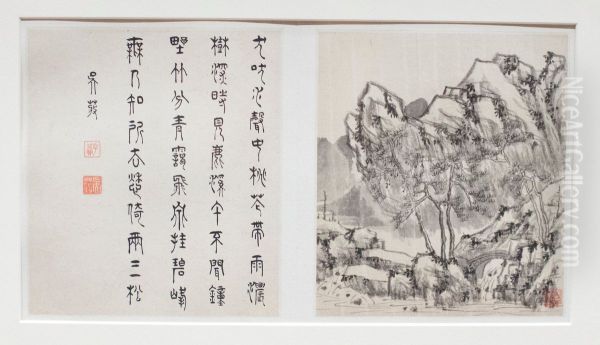 犬吠水聲中桃花帶雨濃
樹深時見鹿溪午不聞鐘
野竹分青靄飛泉挂碧峰
無人知所去愁倚兩三松
吳
NiceArtGallery.com